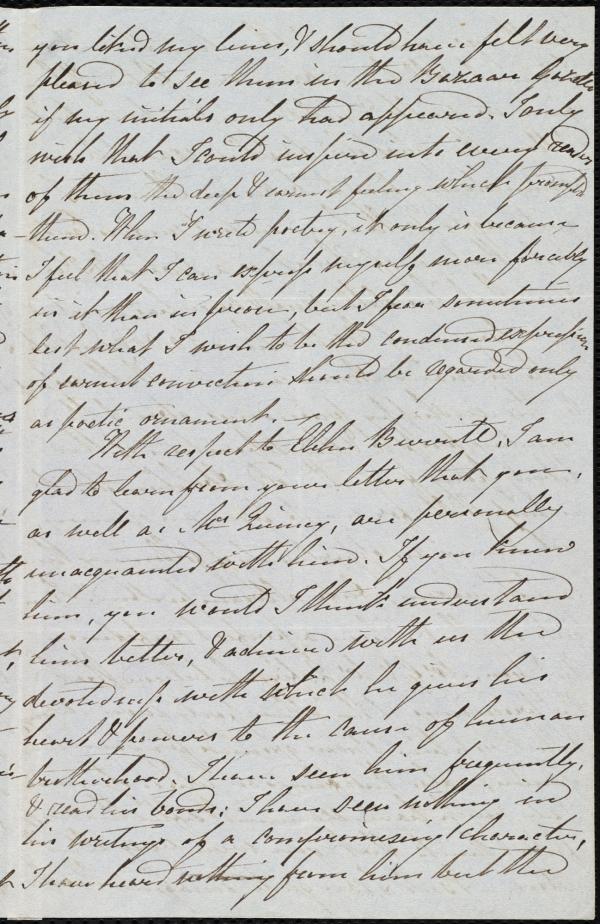 you liked my lines, & should have felt very
pleased to see them in the Bazaar Gazette
if my initials only had appeared. I only
wish that I could inspire into every reader
of them the deep & earnest feeling which prompted
them. When I write poetry, it only is because
I feel that I can express myself more forcibly
in it than in prose, but I fear sometimes
lest what I wish to be the condensed expression
of earnest conviction should be regarded only
as poetic ornament. —
With respect to Elihu Burritt, I am
glad to learn from your letter that you,
as well as Mr Quincy, are personally
unacquainted with him. If you knew
him, you would I think understand
him better, & admire with us the
devotedness with which he gives his
heart & powers to the cause of human
brotherhood. I have seen him frequently,
& read his bonds; I have seen nothing in
his writings of a compromising character,
I have heard nothing from him but the